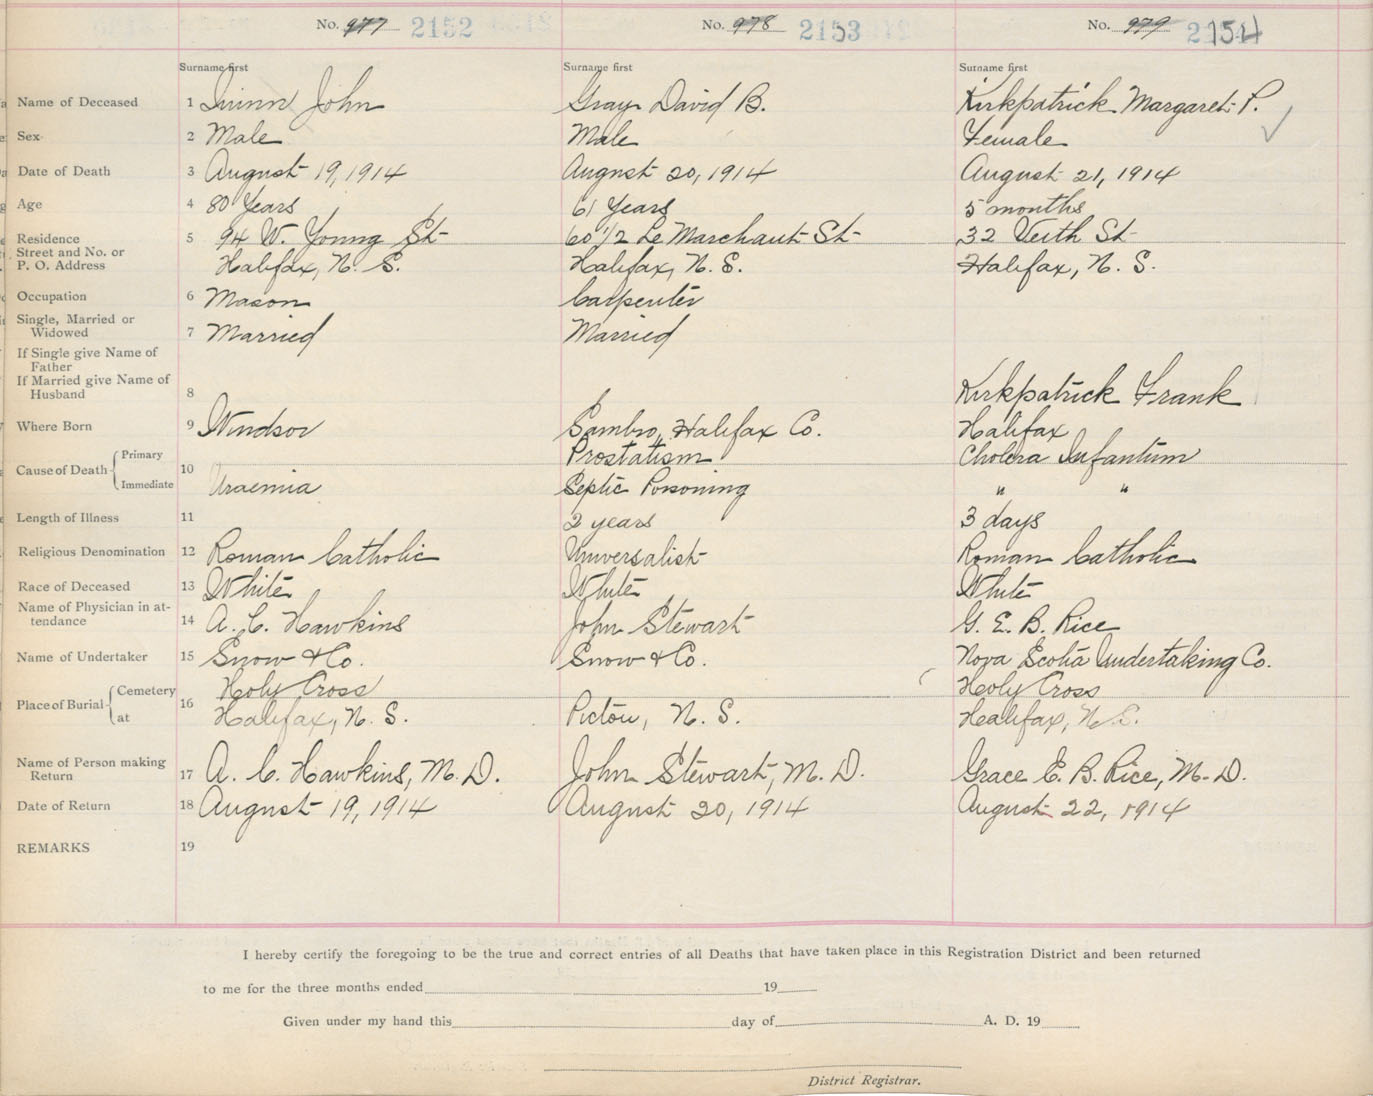 No. 977 2152 No. 978 2153 No. 979 2154
Surname first Surname first Surname first
Name of Deceased 1 Quinn John Gray David B. Kirkpatrick Margaret P.
Sex 2 Male Male Female
Date of Death 3 August 19, 1914 August 20, 1914 August 21, 1914
Age 4 80 Years 61 Years 5 months
Residence 5 94 W. Young St 60 1/2 Le Marchant St 32 Veith St
Street and No. or
P. O. Address Halifax, N. S. Halifax, N. S. Halifax, N. S.
Occupation 6 Mason Carpenter
Single, Married or
Widowed 7 Married Married
If Single give Name of
Father
If Married give Name of
Husband 8 Kirkpatrick Frank
Where Born 9 Windsor Sambro, Halifax Co. Halifax
Cause of Death Primary 10 Prostatism Cholera Infantum
Immediate Uraemia Septic Poisoning " "
Length of Illness 11 2 years 3 days
Religious Denomination 12 Roman Catholic Universalist Roman Catholic
Race of Deceased 13 White White White
Name of Physician in at-
tendance 14 A. C. Hawkins John Stewart G. E. B. Rice
Name of Undertaker 15 Snow & Co. Snow & Co. Nova Scotia Undertaking Co.
Place of Burial Cemetery 16 Holy Cross Holy Cross
at Halifax, N. S. Pictou, N. S. Halifax, N. S.
Name of Person making
Return 17 A. C. Hawkins, M. D. John Stewart, M. D. Grace E. B. Rice, M. D.
Date of Return 18 August 19, 1914 August 20, 1914 August 22, 1914
REMARKS 19
I hereby certify the foregoing to be the true and correct entries of all Deaths that have taken place in this Registration District and been returned
to me for the three months ended 19
Given under my hand this day of A. D. 19
District Registrar.